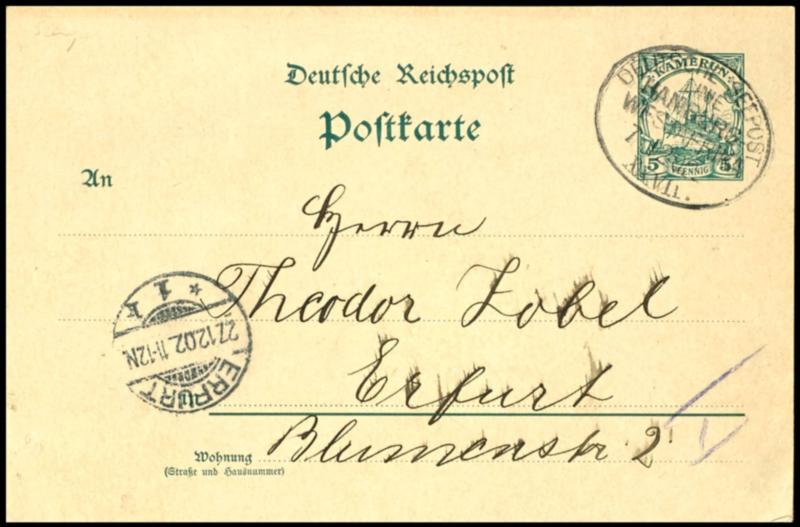 Deutsche Reichspost
Postkarte
KAMERUN
5 PFENNIG 5
DEUTSCHE SEEPOST
LINIE
HAMBURG
WESTAFRIKA
XXVII.
An
Herrn
Theodor Zobel
Erfurt
Blumenstr 2
Wohnung
(Straße und Hausnummer)
* 1 r
27.12.02. 11-12N.
ERFURT